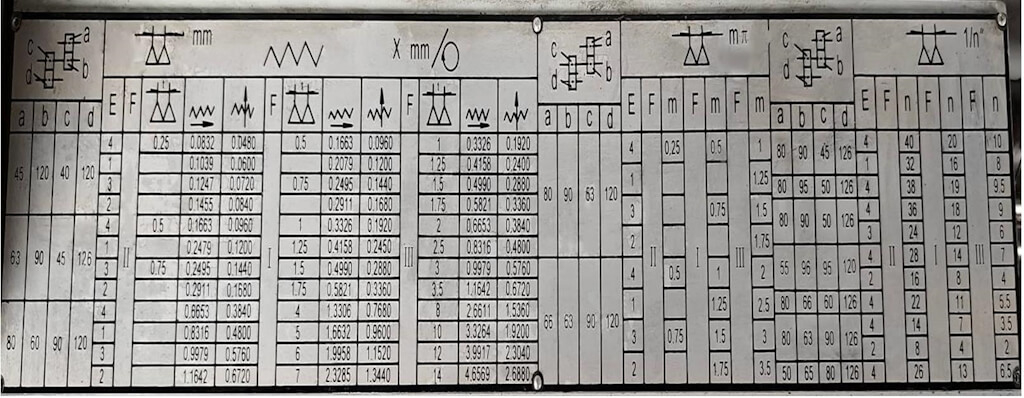 a c d b mm X mm/ a c d b mπ a c d b 1/n"
E F F F E F m F m F m E F n F n F n
a b c d a b c d a b c d
4 0.25 0.0832 0.0480 0.5 0.1663 0.0960 1 0.3326 0.1920 4 0,25 0.5 1 80 90 45 126 4 40 20 10
1 0.1039 0.0600 0.2079 0.1200 1.25 0.4158 0.2400 1 1.25 1 32 16 8
45 120 40 120 3 0.1247 0.0720 0.75 0.2495 0.1440 1.5 0.4990 0.2880 80 90 63 120 80 95 50 126 4 38 19 9.5
2 0.1455 0.0840 0.2911 0.1680 1.75 0.5821 0.3360 3 0.75 1.5 4 36 18 9
4 0.5 0.1663 0.0960 1 0.3326 0.1920 2 0.6653 0.3840 80 90 50 126 3 24 12 6
63 90 45 126 1 II 0.2479 0.1200 I 1.25 0.4158 0.2450 III 2.5 0.8316 0.4800 2 II I III 1.75 4 II 28 I 14 III 7
3 0.75 0.2495 0.1440 1.5 0.4990 0.2880 3 0.9979 0.5760 4 0.5 1 2 55 96 95 120 2 16 8 4
2 0.2911 0.1680 1.75 0.5821 0.3360 3.5 1.1642 0.6720
4 0.6653 0.3840 4 1.3306 0.7680 8 2.6611 1.5360 66 63 90 120 1 1.25 2.5 80 66 60 126 4 22 11 5.5
80 60 90 120 1 0.8316 0.4800 5 1.6632 0.9600 10 3.3264 1.9200 3 0.75 1.5 3 80 63 90 126 4 14 7 3.5
3 0.9979 0.5760 6 1.9958 1.1520 12 3.9917 2.3040 2 8 4 2
2 1.1642 0.6720 7 2.3285 1.3440 14 4.6569 2.6880 2 1.75 3.5 50 65 80 126 4 26 13 6.5